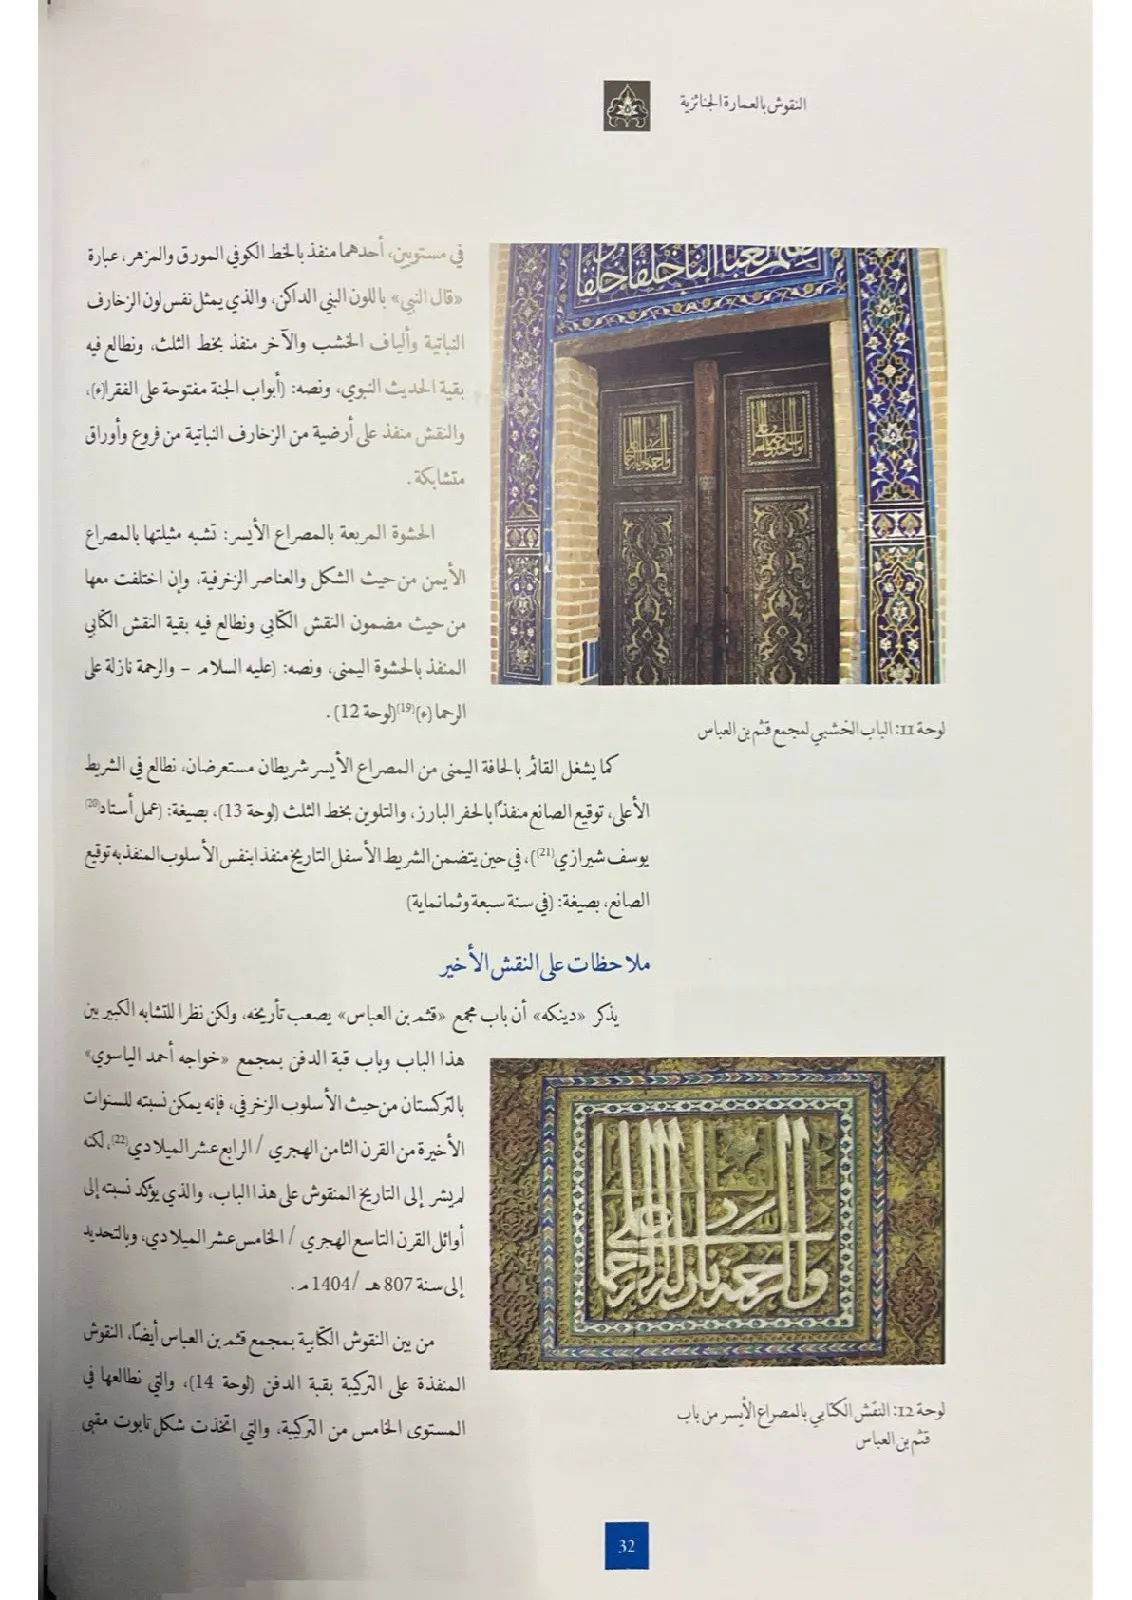 النقوش بالعمارة الجنائزية
في مستويين، أحدهما منفذ بالخط الكوفي المورق والمزهر، عبارة
«قال النبي» باللون البني الداكن، والذي يمثل نفس لون الزخارف
النباتية وألياف الخشب والآخر منفذ بخط الثلث، ونطالع فيه
بقية الحديث النبوي، ونصه: (أبواب الجنة مفتوحة على الفقرا(ء)،
والنقش منفذ على أرضية من الزخارف النباتية من فروع وأوراق
متشابكة.
الحشوة المربعة بالمصراع الأيسر: تشبه مثيلتها بالمصراع
الأيمن من حيث الشكل والعناصر الزخرفية، وإن اختلفت معها
من حيث مضمون النقش الكتابي ونطالع فيه بقية النقش الكتابي
المنفذ بالحشوة اليمنى، ونصه: (عليه السلام – والرحمة نازلة على
الرحما (ء)(19)(لوحة 12).
لوحة 11: الباب الخشبي لمجمع قثم بن العباس
كما يشغل القائم بالحافة اليمنى من المصراع الأيسر شريطان مستعرضان، نطالع في الشريط
الأعلى، توقيع الصانع منفذًا بالحفر البارز، والتلوين بخط الثلث (لوحة 13)، بصيغة: (عمل أستاد(20)
يوسف شيرازي(21))، في حين يتضمن الشريط الأسفل التاريخ منفذا بنفس الأسلوب المنفذ به توقيع
الصانع، بصيغة: (في سنة سبعة وثمانماية)
ملاحظات على النقش الأخير
يذكر «دينكه» أن باب مجمع «قثم بن العباس» يصعب تأريخه، ولكن نظرا للتشابه الكبير بين
هذا الباب وباب قبة الدفن بمجمع «خواجه أحمد الياسوي»
بالتركستان من حيث الأسلوب الزخرفي، فإنه يمكن نسبته للسنوات
الأخيرة من القرن الثامن الهجري / الرابع عشر الميلادي(22)، لكنه
لم يشر إلى التاريخ المنقوش على هذا الباب، والذي يؤكد نسبته إلى
أوائل القرن التاسع الهجري / الخامس عشر الميلادي، وبالتحديد
إلى سنة 807 هـ /1404 م.
من بين النقوش الكتابية بمجمع قثم بن العباس أيضًا، النقوش
المنفذة على التركيبة بقبة الدفن (لوحة 14)، والتي نطالعها في
المستوى الخامس من التركيبة، والتي اتخذت شكل تابوت مقبى
والرحمة نازلة على الرحما
لوحة 12: النقش الكتابي بالمصراع الأيسر من باب
قثم بن العباس
32